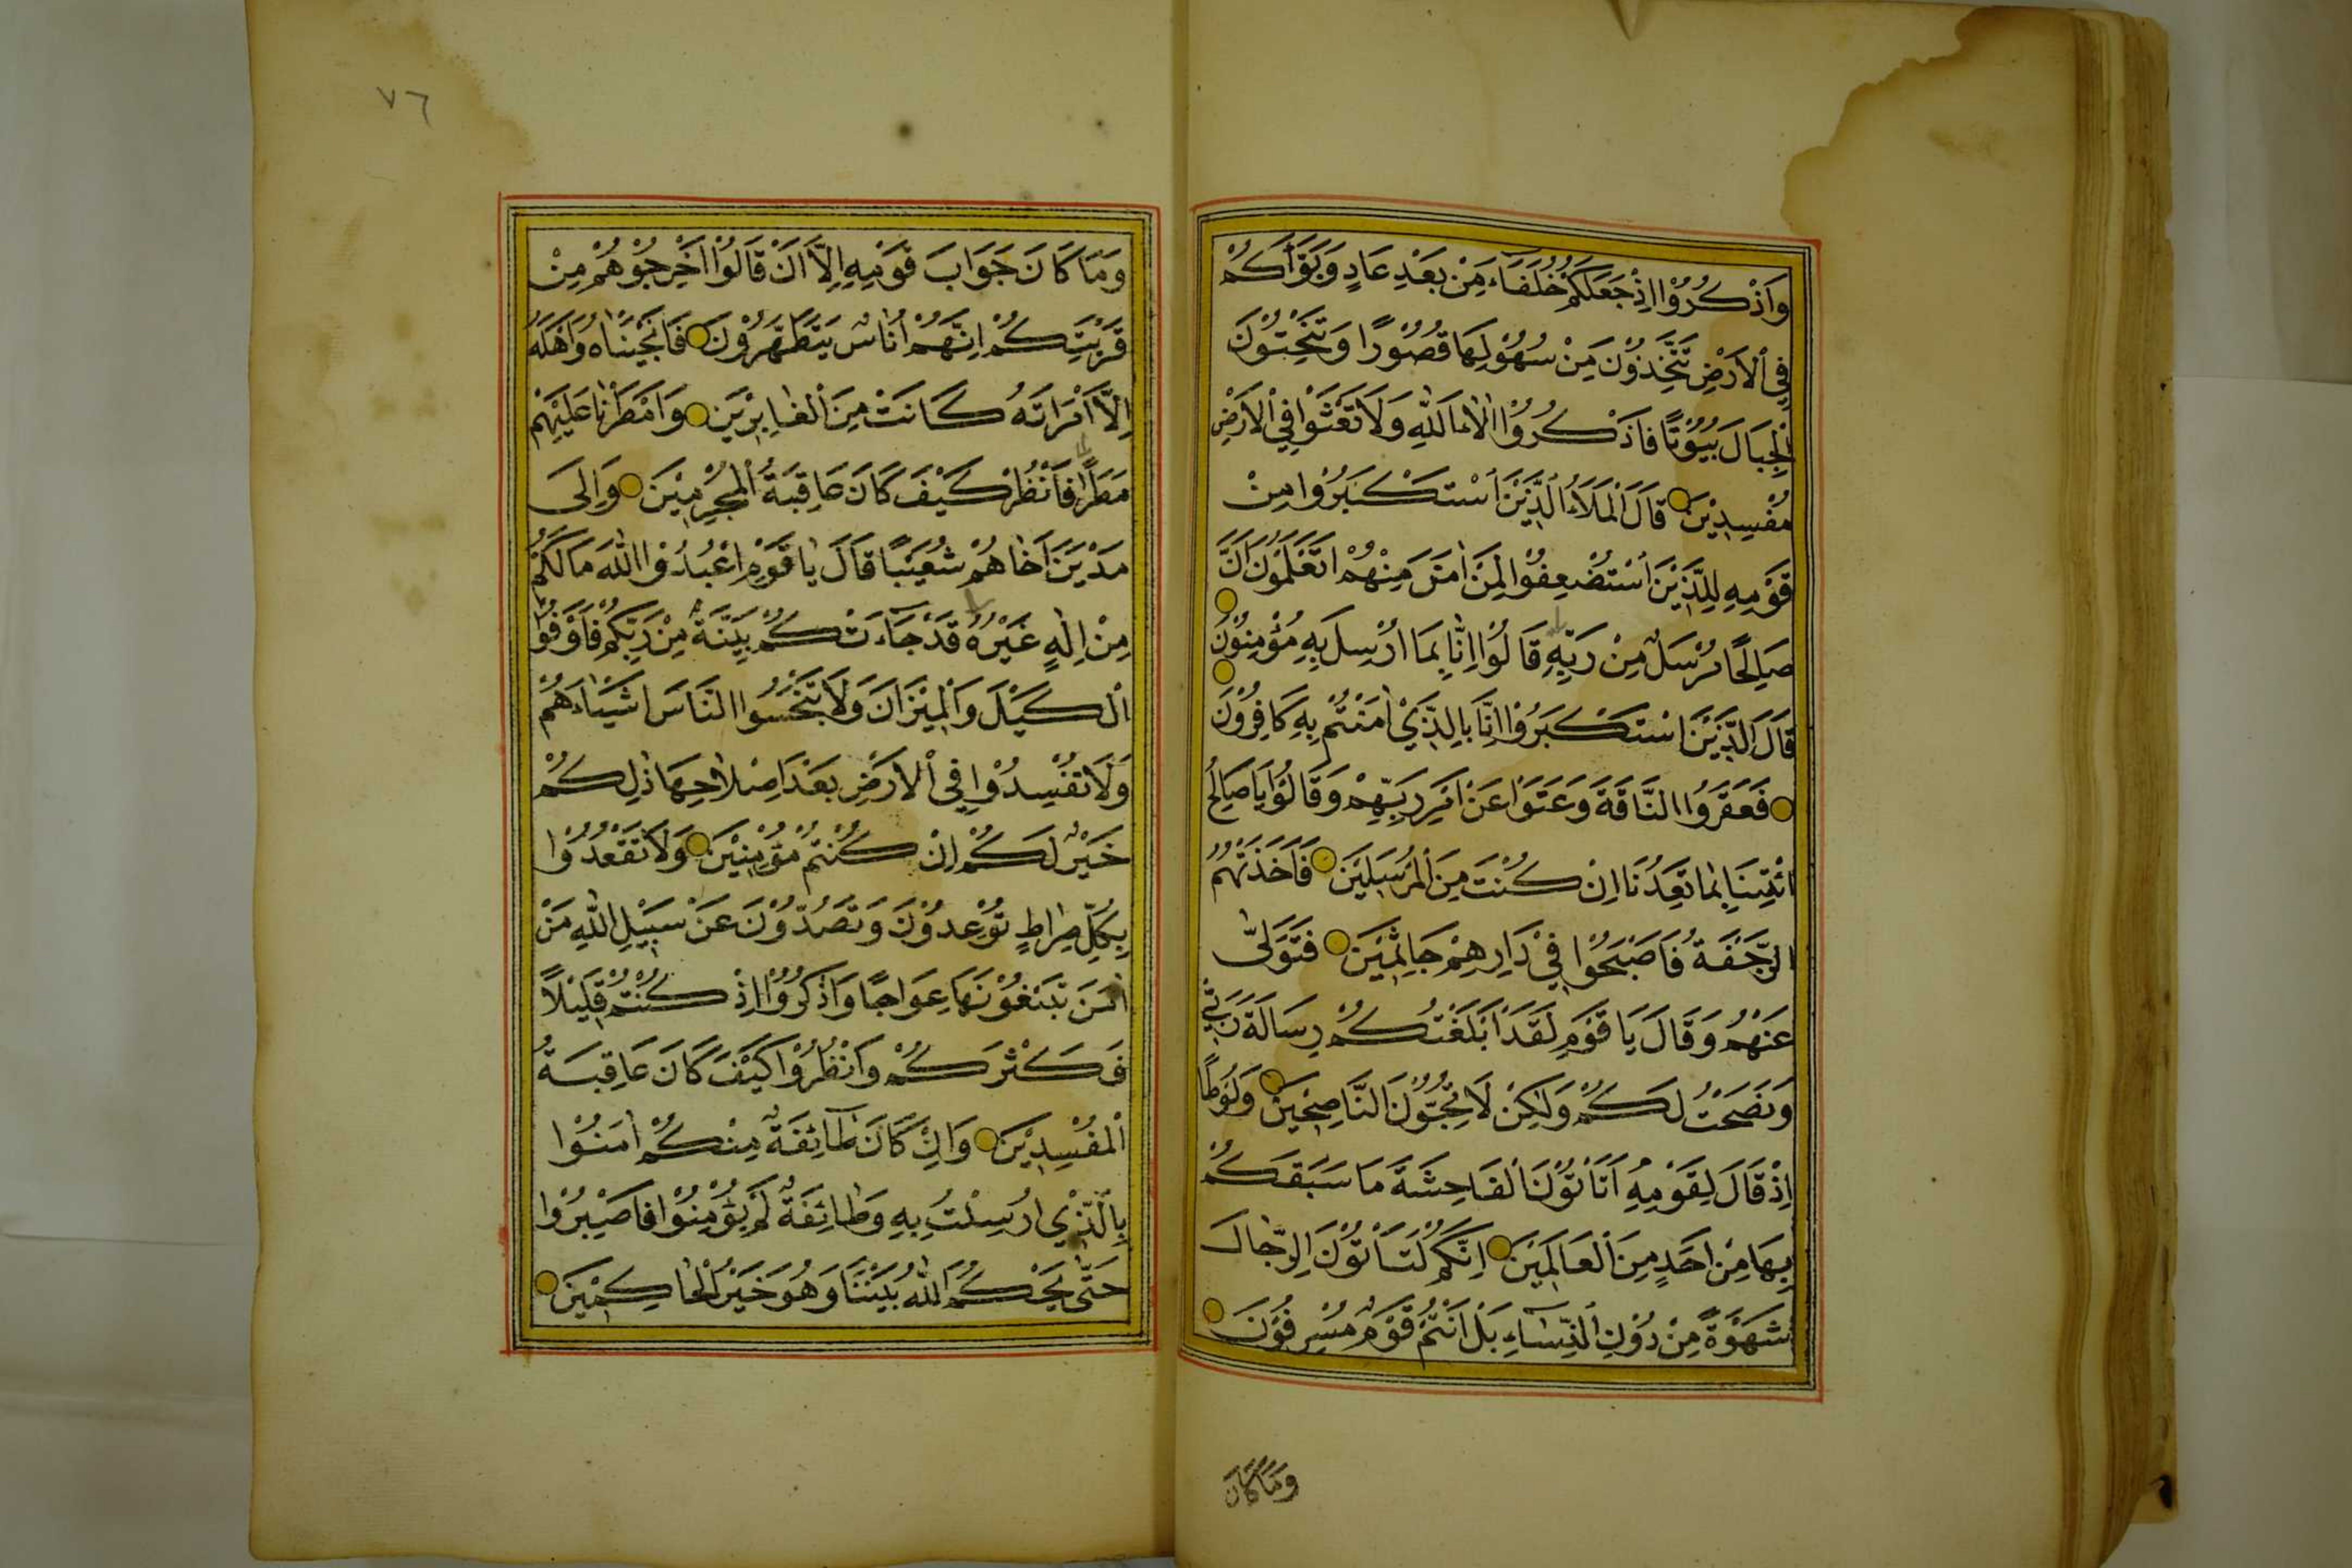 وَاذْكُرُوْا اِذْ جَعَلَكُمْ خُلَفَاءَ مِنْ بَعْدِ عَادٍ وَبَوَّاَكُمْ
فِي الْاَرْضِ تَتَّخِذُوْنَ مِنْ سُهُوْلِهَا قُصُوْرًا وَتَنْحِتُوْنَ
الْجِبَالَ بُيُوْتًا فَاذْكُرُوْا اٰلَاءَ اللّٰهِ وَلَا تَعْثَوْا فِي الْاَرْضِ
مُفْسِدِيْنَ قَالَ الْمَلَاُ الَّذِيْنَ اسْتَكْبَرُوْا مِنْ
قَوْمِهِ لِلَّذِيْنَ اسْتُضْعِفُوْا لِمَنْ اٰمَنَ مِنْهُمْ اَتَعْلَمُوْنَ اَنَّ
صَالِحًا مُرْسَلٌ مِنْ رَبِّهِ قَالُوْا اِنَّا بِمَا اُرْسِلَ بِهِ مُؤْمِنُوْنَ
قَالَ الَّذِيْنَ اسْتَكْبَرُوْا اِنَّا بِالَّذِيْ اٰمَنْتُمْ بِهِ كَافِرُوْنَ
فَعَقَرُوا النَّاقَةَ وَعَتَوْا عَنْ اَمْرِ رَبِّهِمْ وَقَالُوْا يَا صَالِحُ
ائْتِنَا بِمَا تَعِدُنَا اِنْ كُنْتَ مِنَ الْمُرْسَلِيْنَ فَاَخَذَتْهُمُ
الرَّجْفَةُ فَاَصْبَحُوْا فِيْ دَارِهِمْ جَاثِمِيْنَ فَتَوَلّٰى
عَنْهُمْ وَقَالَ يَا قَوْمِ لَقَدْ اَبْلَغْتُكُمْ رِسَالَةَ رَبِّيْ
وَنَصَحْتُ لَكُمْ وَلٰكِنْ لَا تُحِبُّوْنَ النَّاصِحِيْنَ وَلُوْطًا
اِذْ قَالَ لِقَوْمِهِ اَتَاْتُوْنَ الْفَاحِشَةَ مَا سَبَقَكُمْ
بِهَا مِنْ اَحَدٍ مِنَ الْعَالَمِيْنَ اِنَّكُمْ لَتَاْتُوْنَ الرِّجَالَ
شَهْوَةً مِنْ دُوْنِ النِّسَاءِ بَلْ اَنْتُمْ قَوْمٌ مُسْرِفُوْنَ
وَمَا كَانَ
٧٦
وَمَا كَانَ جَوَابَ قَوْمِهِ اِلَّا اَنْ قَالُوْا اَخْرِجُوْهُمْ مِنْ
قَرْيَتِكُمْ اِنَّهُمْ اُنَاسٌ يَتَطَهَّرُوْنَ فَاَنْجَيْنَاهُ وَاَهْلَهُ
اِلَّا امْرَاَتَهُ كَانَتْ مِنَ الْغَابِرِيْنَ وَاَمْطَرْنَا عَلَيْهِمْ
مَطَرًا فَانْظُرْ كَيْفَ كَانَ عَاقِبَةُ الْمُجْرِمِيْنَ وَاِلٰى
مَدْيَنَ اَخَاهُمْ شُعَيْبًا قَالَ يَا قَوْمِ اعْبُدُوا اللّٰهَ مَا لَكُمْ
مِنْ اِلٰهٍ غَيْرُهُ قَدْ جَاءَتْكُمْ بَيِّنَةٌ مِنْ رَبِّكُمْ فَاَوْفُوا
الْكَيْلَ وَالْمِيْزَانَ وَلَا تَبْخَسُوا النَّاسَ اَشْيَاءَهُمْ
وَلَا تُفْسِدُوْا فِي الْاَرْضِ بَعْدَ اِصْلَاحِهَا ذٰلِكُمْ
خَيْرٌ لَكُمْ اِنْ كُنْتُمْ مُؤْمِنِيْنَ وَلَا تَقْعُدُوْا
بِكُلِّ صِرَاطٍ تُوْعِدُوْنَ وَتَصُدُّوْنَ عَنْ سَبِيْلِ اللّٰهِ مَنْ
اٰمَنَ تَبْتَغُوْنَهَا عِوَاجًا وَاذْكُرُوْا اِذْ كُنْتُمْ قَلِيْلًا
فَكَثَّرَكُمْ وَانْظُرُوْا كَيْفَ كَانَ عَاقِبَةُ
الْمُفْسِدِيْنَ وَاِنْ كَانَ طَائِفَةٌ مِنْكُمْ اٰمَنُوْا
بِالَّذِيْ اُرْسِلْتُ بِهِ وَطَائِفَةٌ لَمْ يُؤْمِنُوْا فَاصْبِرُوْا
حَتّٰى يَحْكُمَ اللّٰهُ بَيْنَنَا وَهُوَ خَيْرُ الْحَاكِمِيْنَ